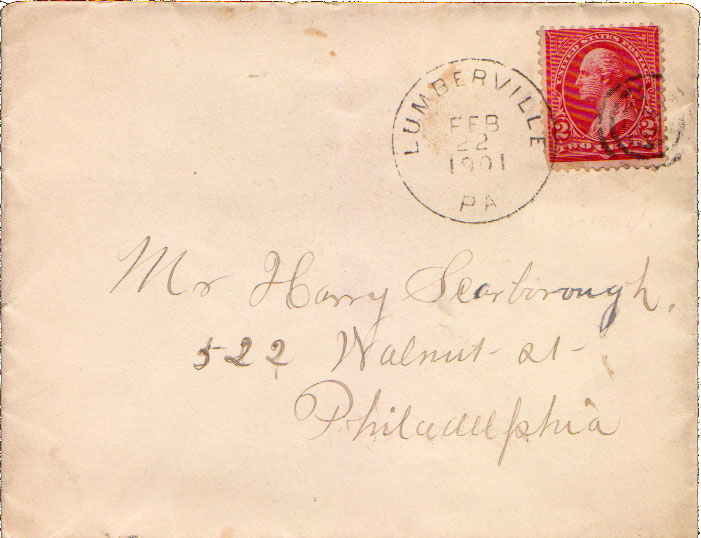 LUMBERVILLE
FEB
22
1901
PA
UNITED STATES POSTAGE
2 2
TWO CENTS
Mr Harry Scarborough,
522 Walnut st
Philadelphia